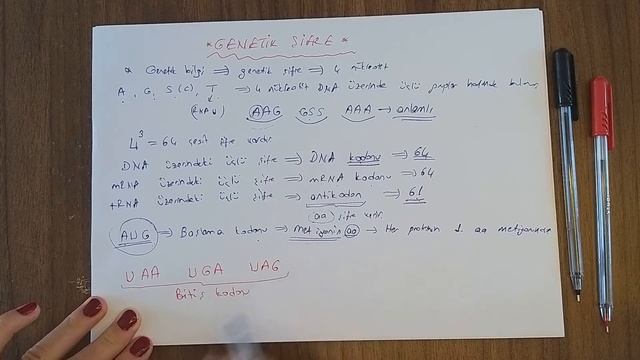 * GENETİK ŞİFRE *
* Genetik bilgi ⇒ genetik şifre ⇒ 4 nükleotit
A, G, S(C), T ⇒ 4 nükleotit DNA üzerinde üçlü halinde
(RNA U) AAG GSS AAA → anlamlı
4³ = 64 çeşit şifre vardır
DNA üzerindeki üçlü şifre ⇒ DNA kodonu ⇒ 64
mRNA üzerindeki üçlü şifre ⇒ mRNA kodonu → 64
tRNA üzerindeki üçlü şifre ⇒ antikodon → 61
(aa) şifre
AUG ⇒ Başlama kodonu ⇒ metiyonin aa → Her protein 1. aa
UAA UGA UAG
Bitiş kodonu